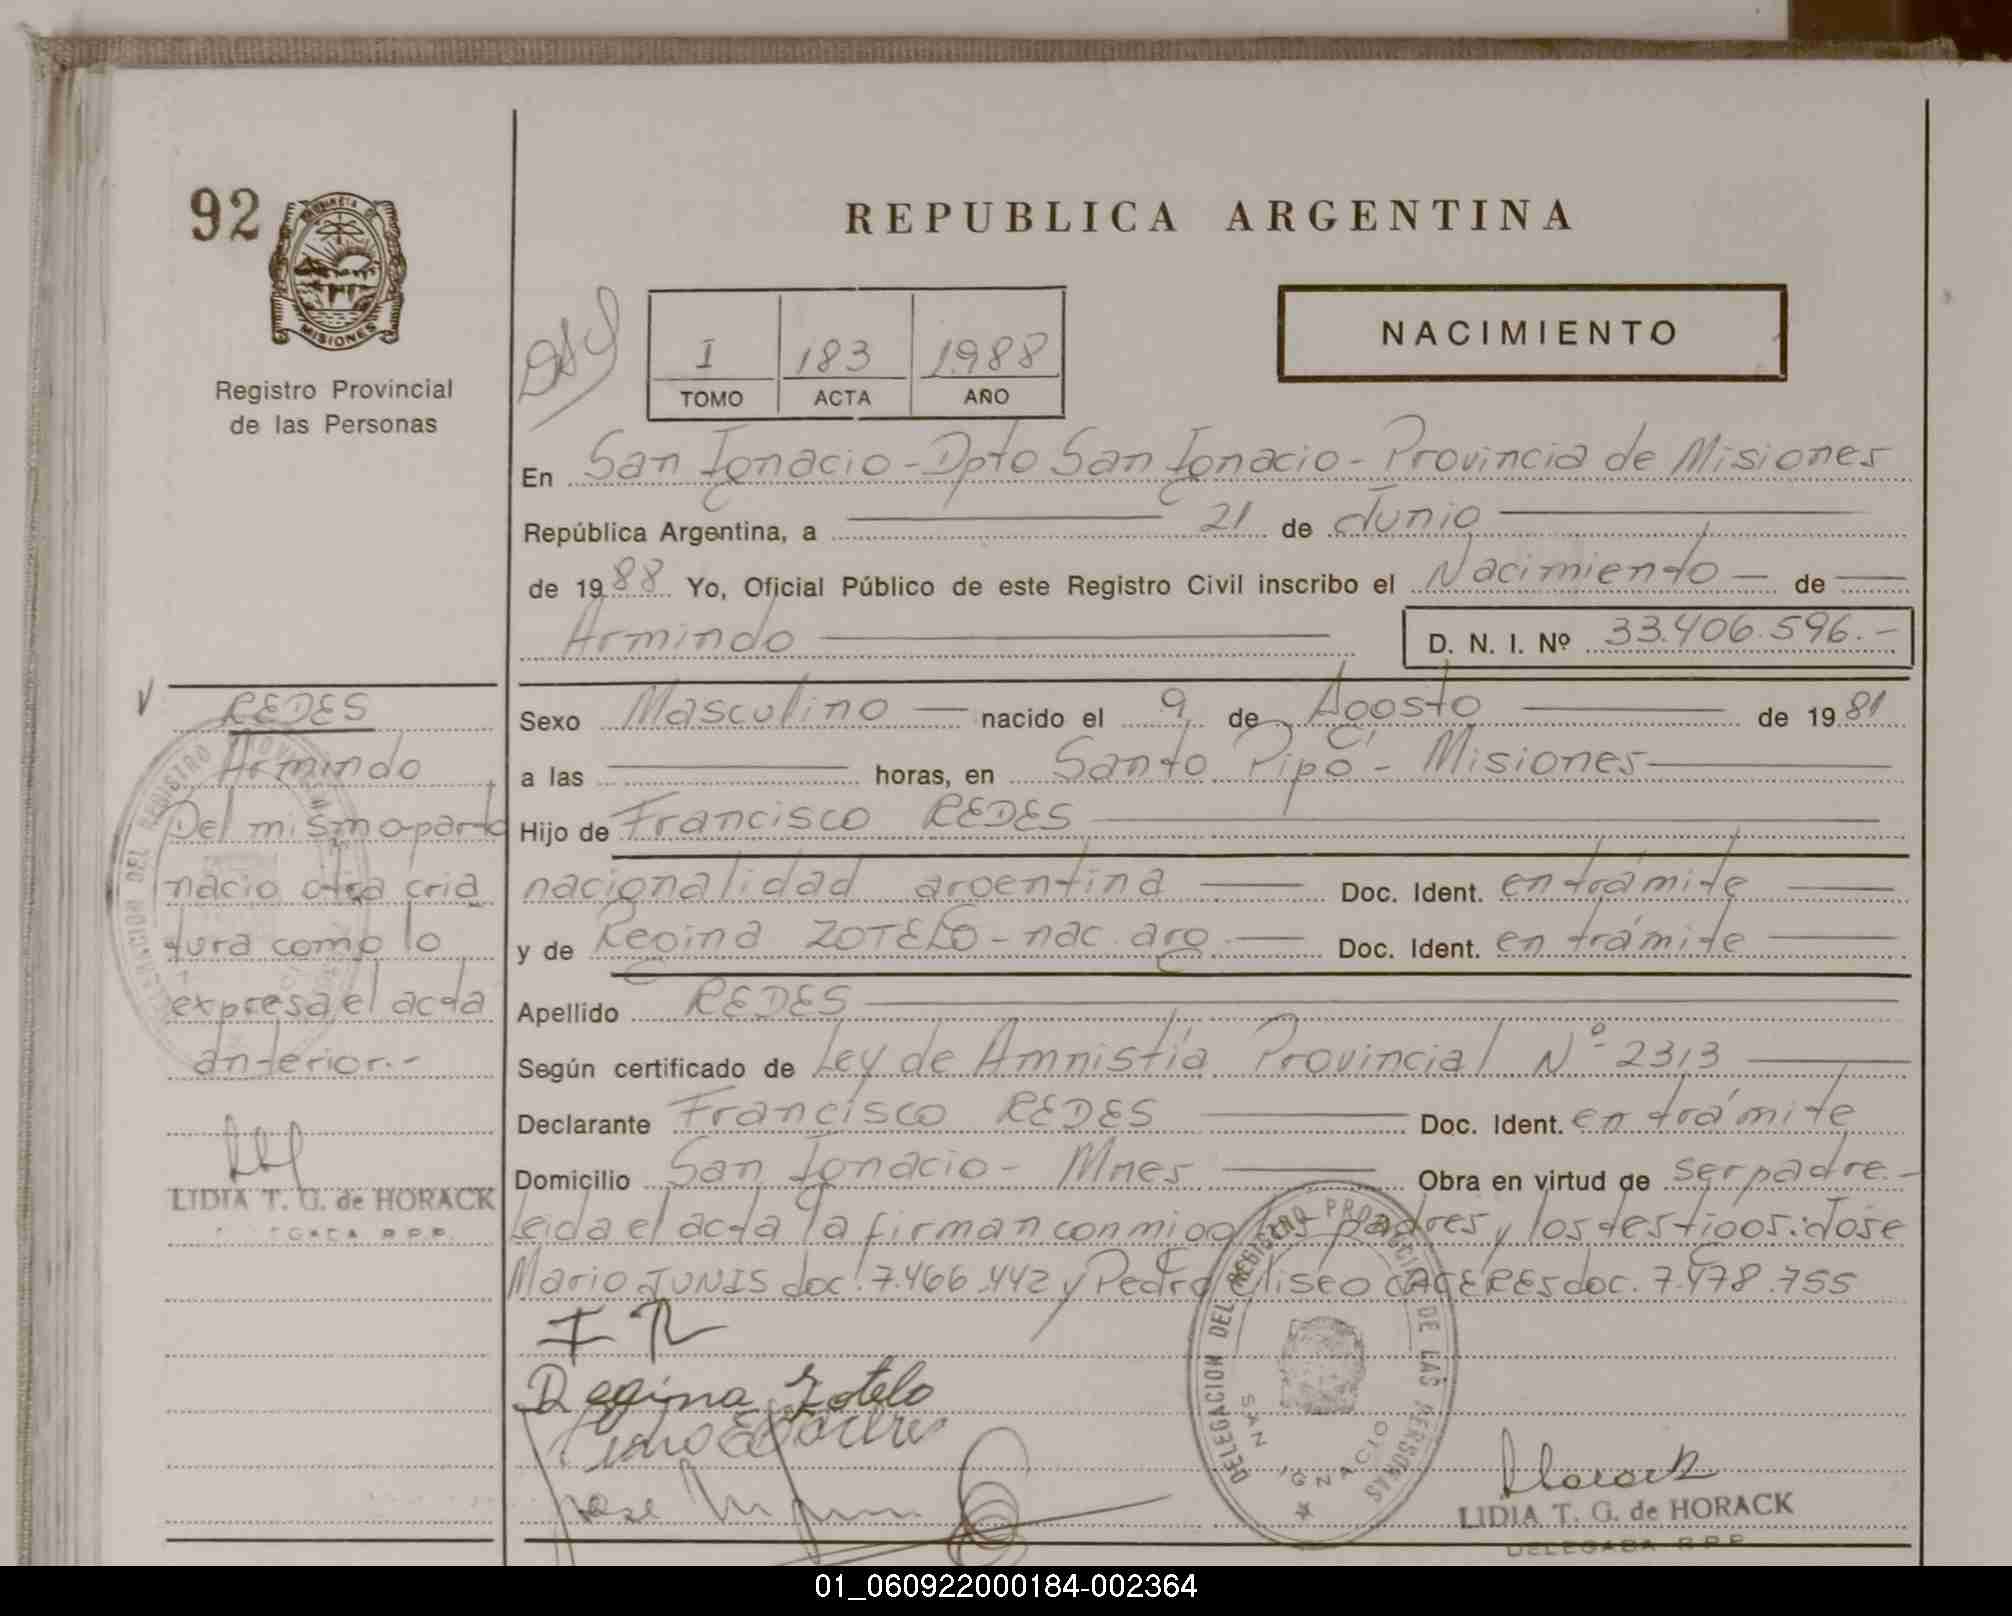 92
PROVINCIA DE
MISIONES
Registro Provincial
de las Personas
REPUBLICA ARGENTINA
NACIMIENTO
I 183 1.988
TOMO ACTA AÑO
En San Ignacio - Dpto San Ignacio - Provincia de Misiones
República Argentina, a 21 de Junio
de 1988 Yo, Oficial Público de este Registro Civil inscribo el Nacimiento de
Armindo D. N. I. Nº 33.406.596.-
REDES
Armindo
Del mismo parto
nacio otra cria
tura como lo
expresa el acta
anterior.-
LIDIA T. G. de HORACK
Sexo Masculino nacido el 9 de Agosto de 1981
a las horas, en Santo Pipó - Misiones
Hijo de Francisco REDES
nacionalidad argentina Doc. Ident. en trámite
y de Regina ZOTELO - nac. arg. Doc. Ident. en trámite
Apellido REDES
Según certificado de Ley de Amnistía Provincial Nº 2313
Declarante Francisco REDES Doc. Ident. en trámite
Domicilio San Ignacio - Mnes Obra en virtud de ser padre.-
Leida el acta la firman conmigo los padres y los testigos: José
Mario JUNIS doc. 7.466.442 y Pedro Eliseo CACERES doc. 7.478.755
F R
Regina Zotelo
José
DELEGACION DEL REGISTRO PROVINCIAL DE LAS PERSONAS
SAN IGNACIO
Horack
LIDIA T. G. de HORACK
DELEGADA R.P.P.
01_060922000184-002364